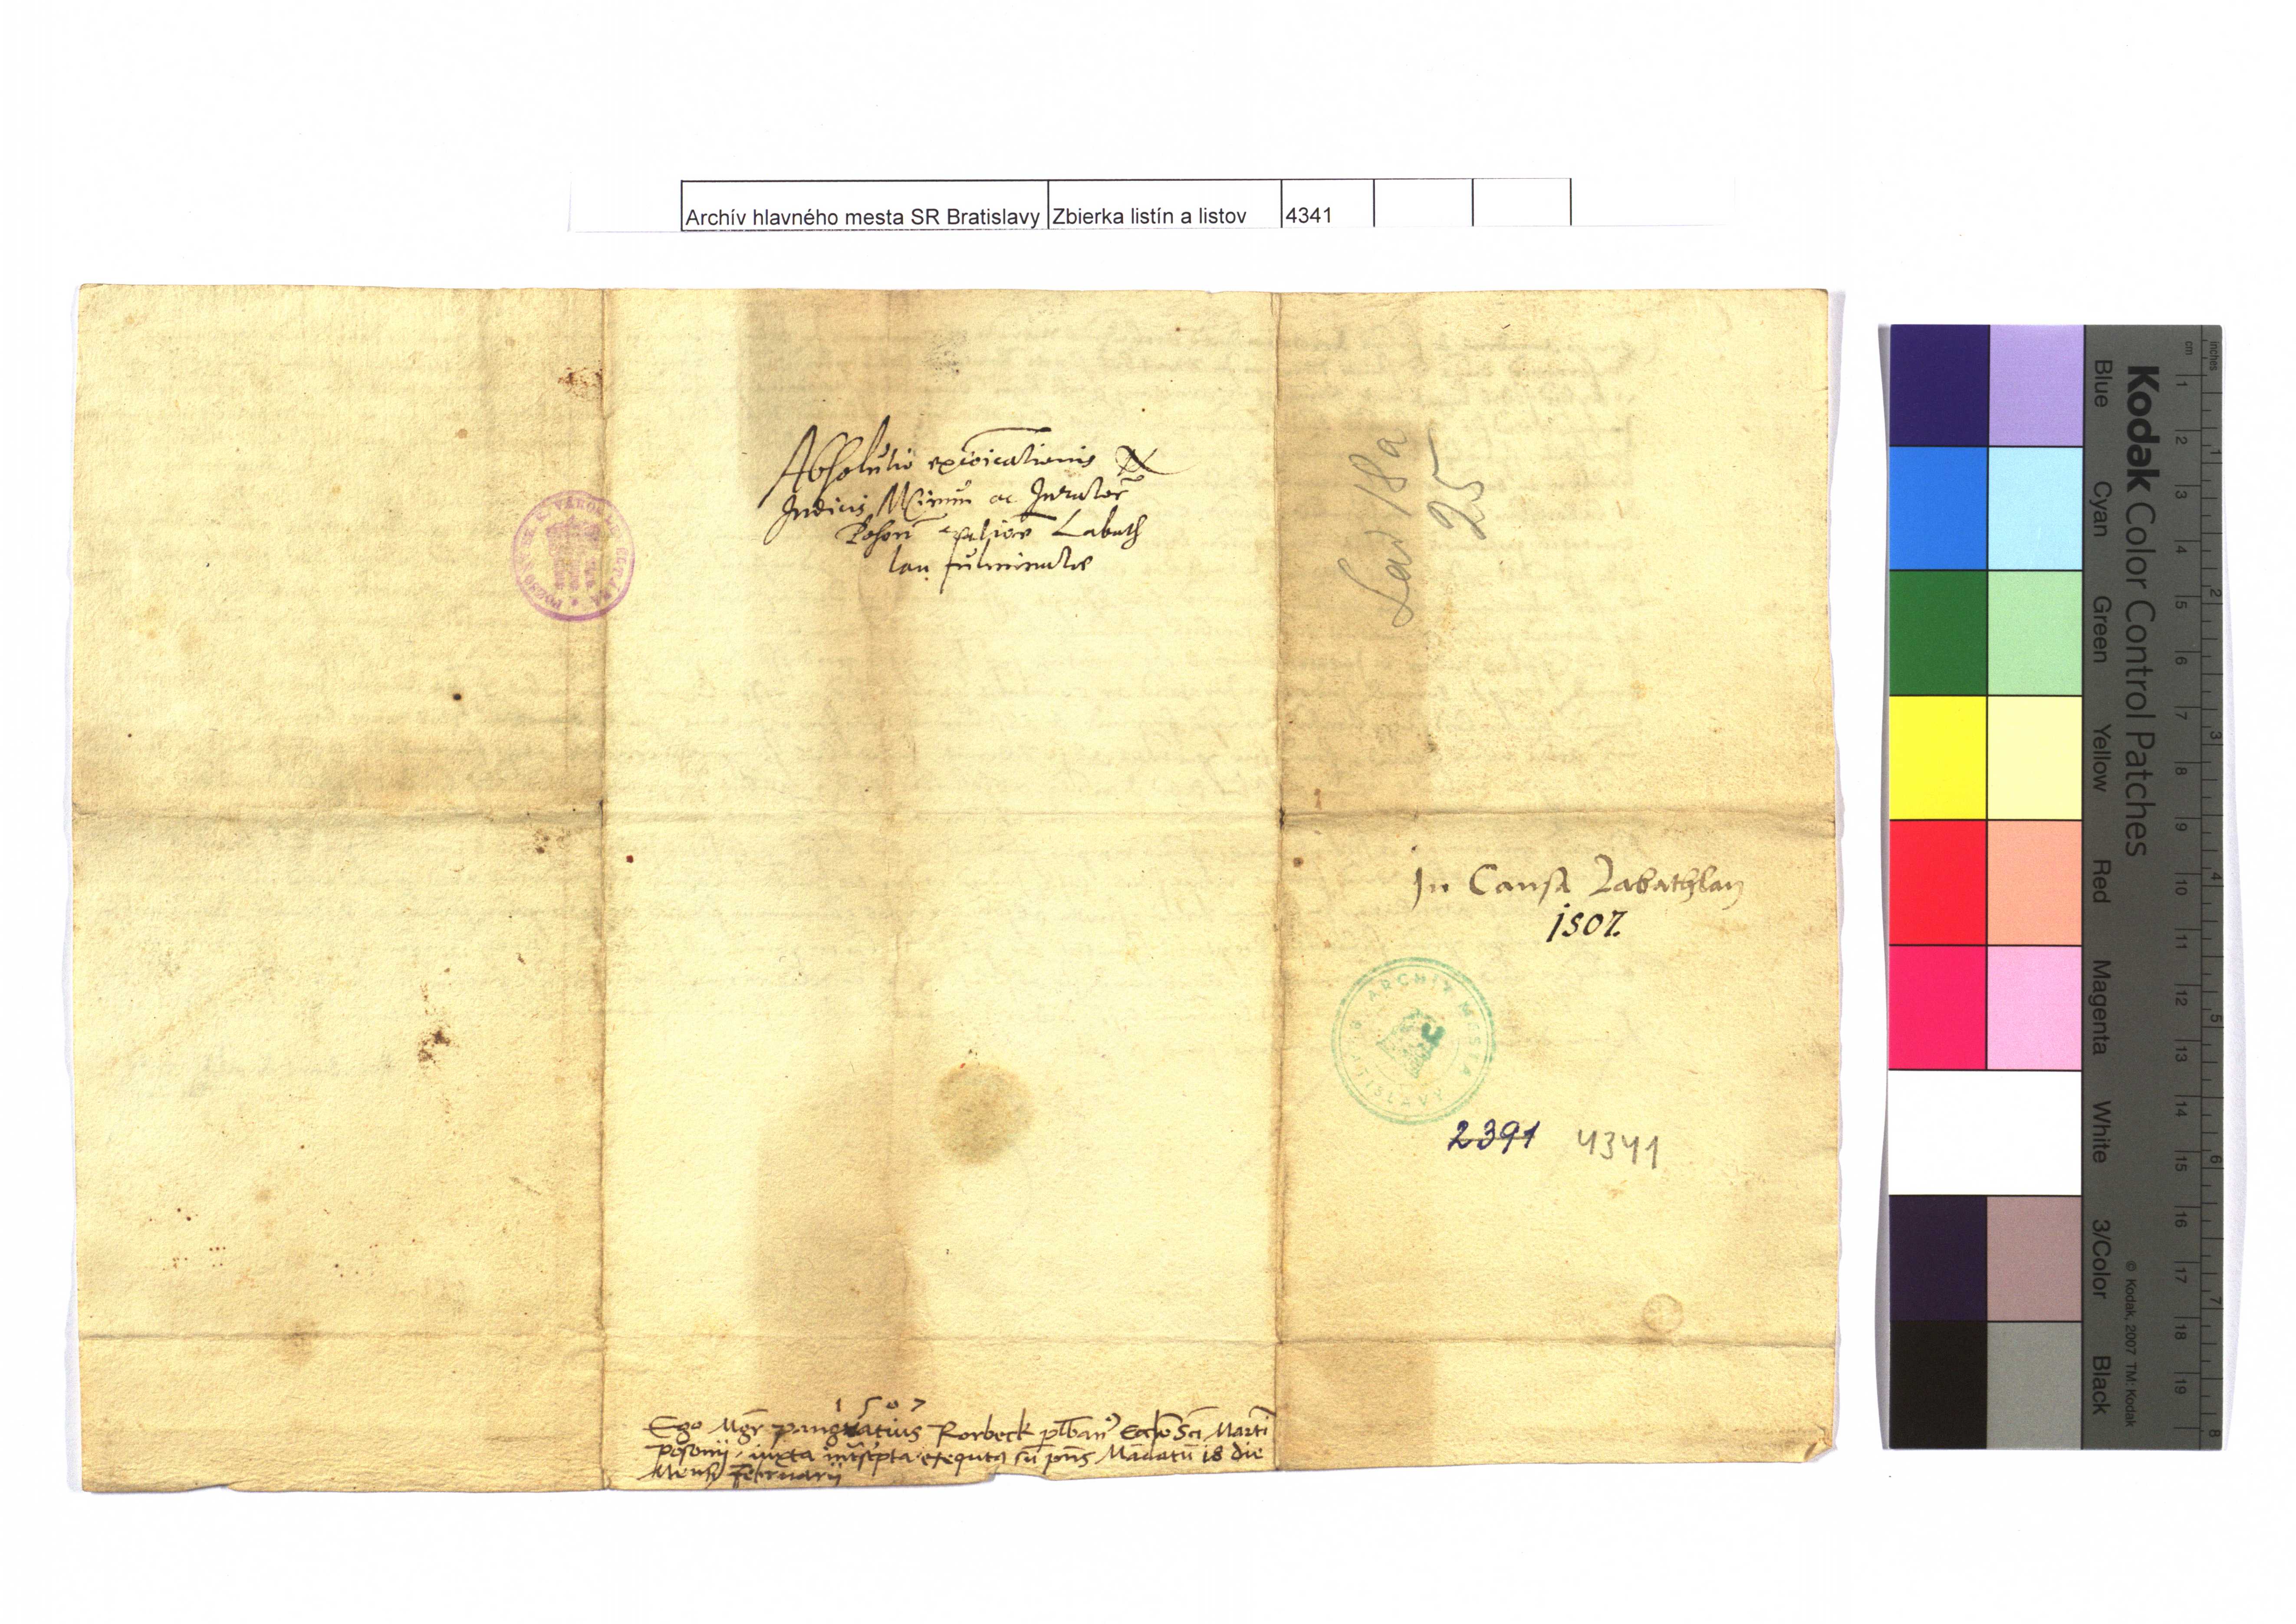 Archív hlavného mesta SR Bratislavy Zbierka listín a listov 4341
Absolutio excoicationis
Judicis Mgrum ac Jurator
Poson Labath
lan fulminate
Lad 18a
25
In Causa Labathlan
1507.
ARCHÍV MESTA BRATISLAVY
2391 4341
1507
Ego Mgr pangratius Rorbeck plban Eccle Sci Marti
posonii iuxta exequt su pns Madatu 18 die
Mens Februarii
Kodak Color Control Patches
Blue Cyan Green Yellow Red Magenta White 3/Color Black
© Kodak, 2007 TM: Kodak
cm 1 2 3 4 5 6 7 8 9 10 11 12 13 14 15 16 17 18 19
inches 1 2 3 4 5 6 7 8